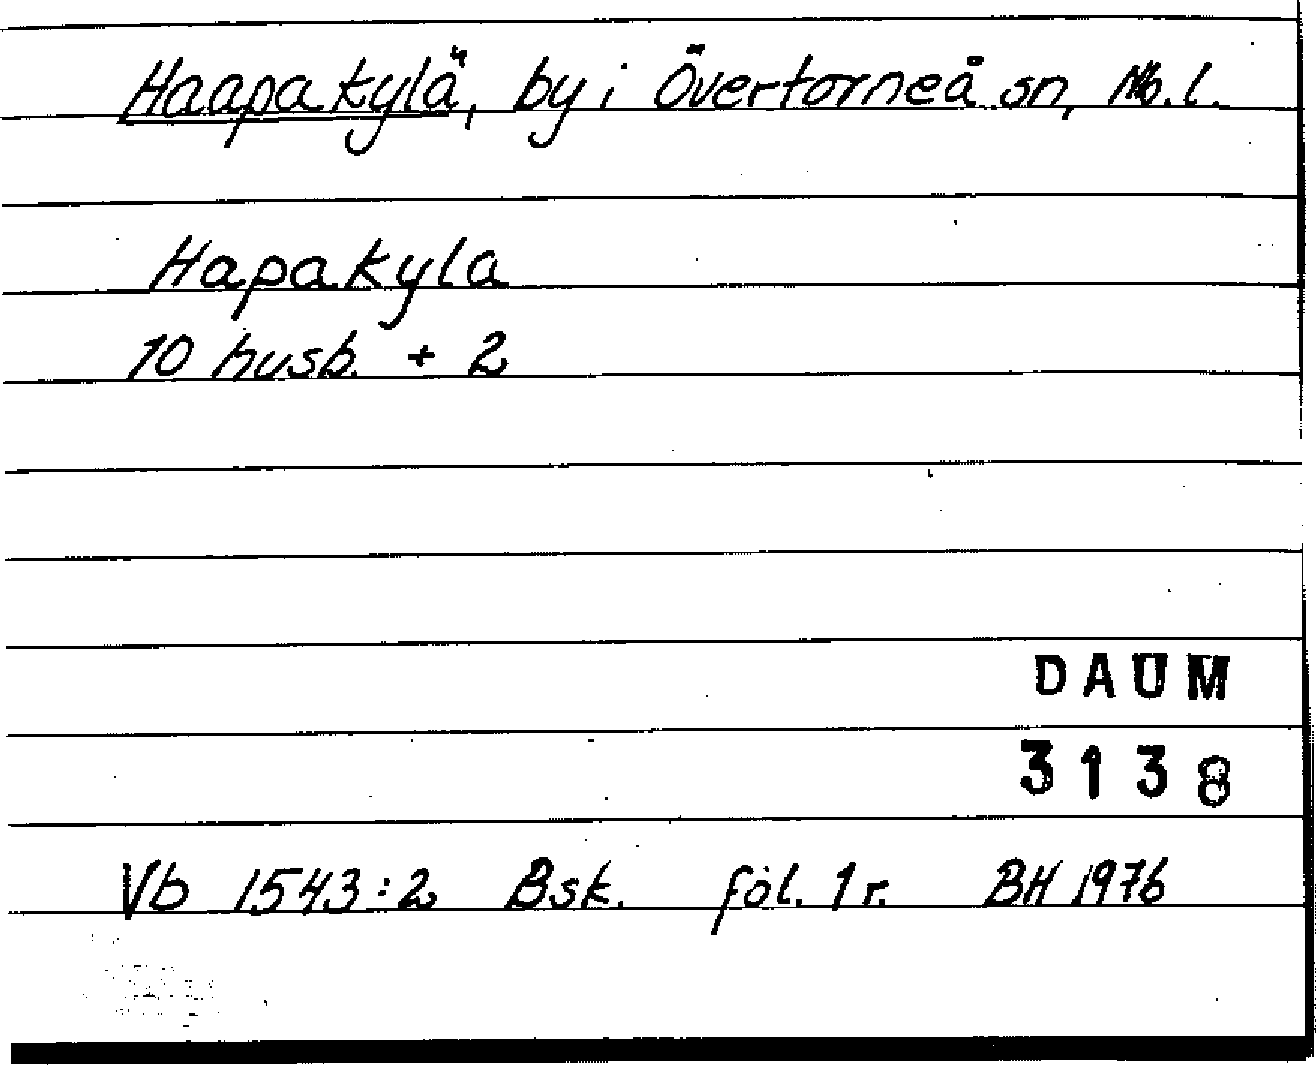 Haapakylä, by i Övertorneå sn, Nb.l.
Hapakyla
10 husb. + 2
DAUM
3138
Vb 1543:2 Bsk. föl. 1 r. BH 1976